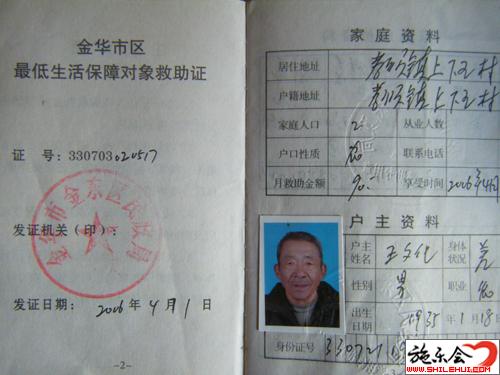 金华市区
最低生活保障对象救助证
证 号: 330703020517
金华市金东区民政局
发证机关(印):
发证日期: 2006年4月1日
-2-
家庭资料
居住地址 孝顺镇上下王村
户籍地址 孝顺镇上下王村
家庭人口 2 从业人数
户口性质 农 联系电话
月救助金额 90. 享受时间 2006年4月
户主资料
户主姓名 王文化 身体状况
性别 男 职业 农
出生日期 1935年1月18日
身份证号 330721
施乐会
WWW.SHILEHUI.COM